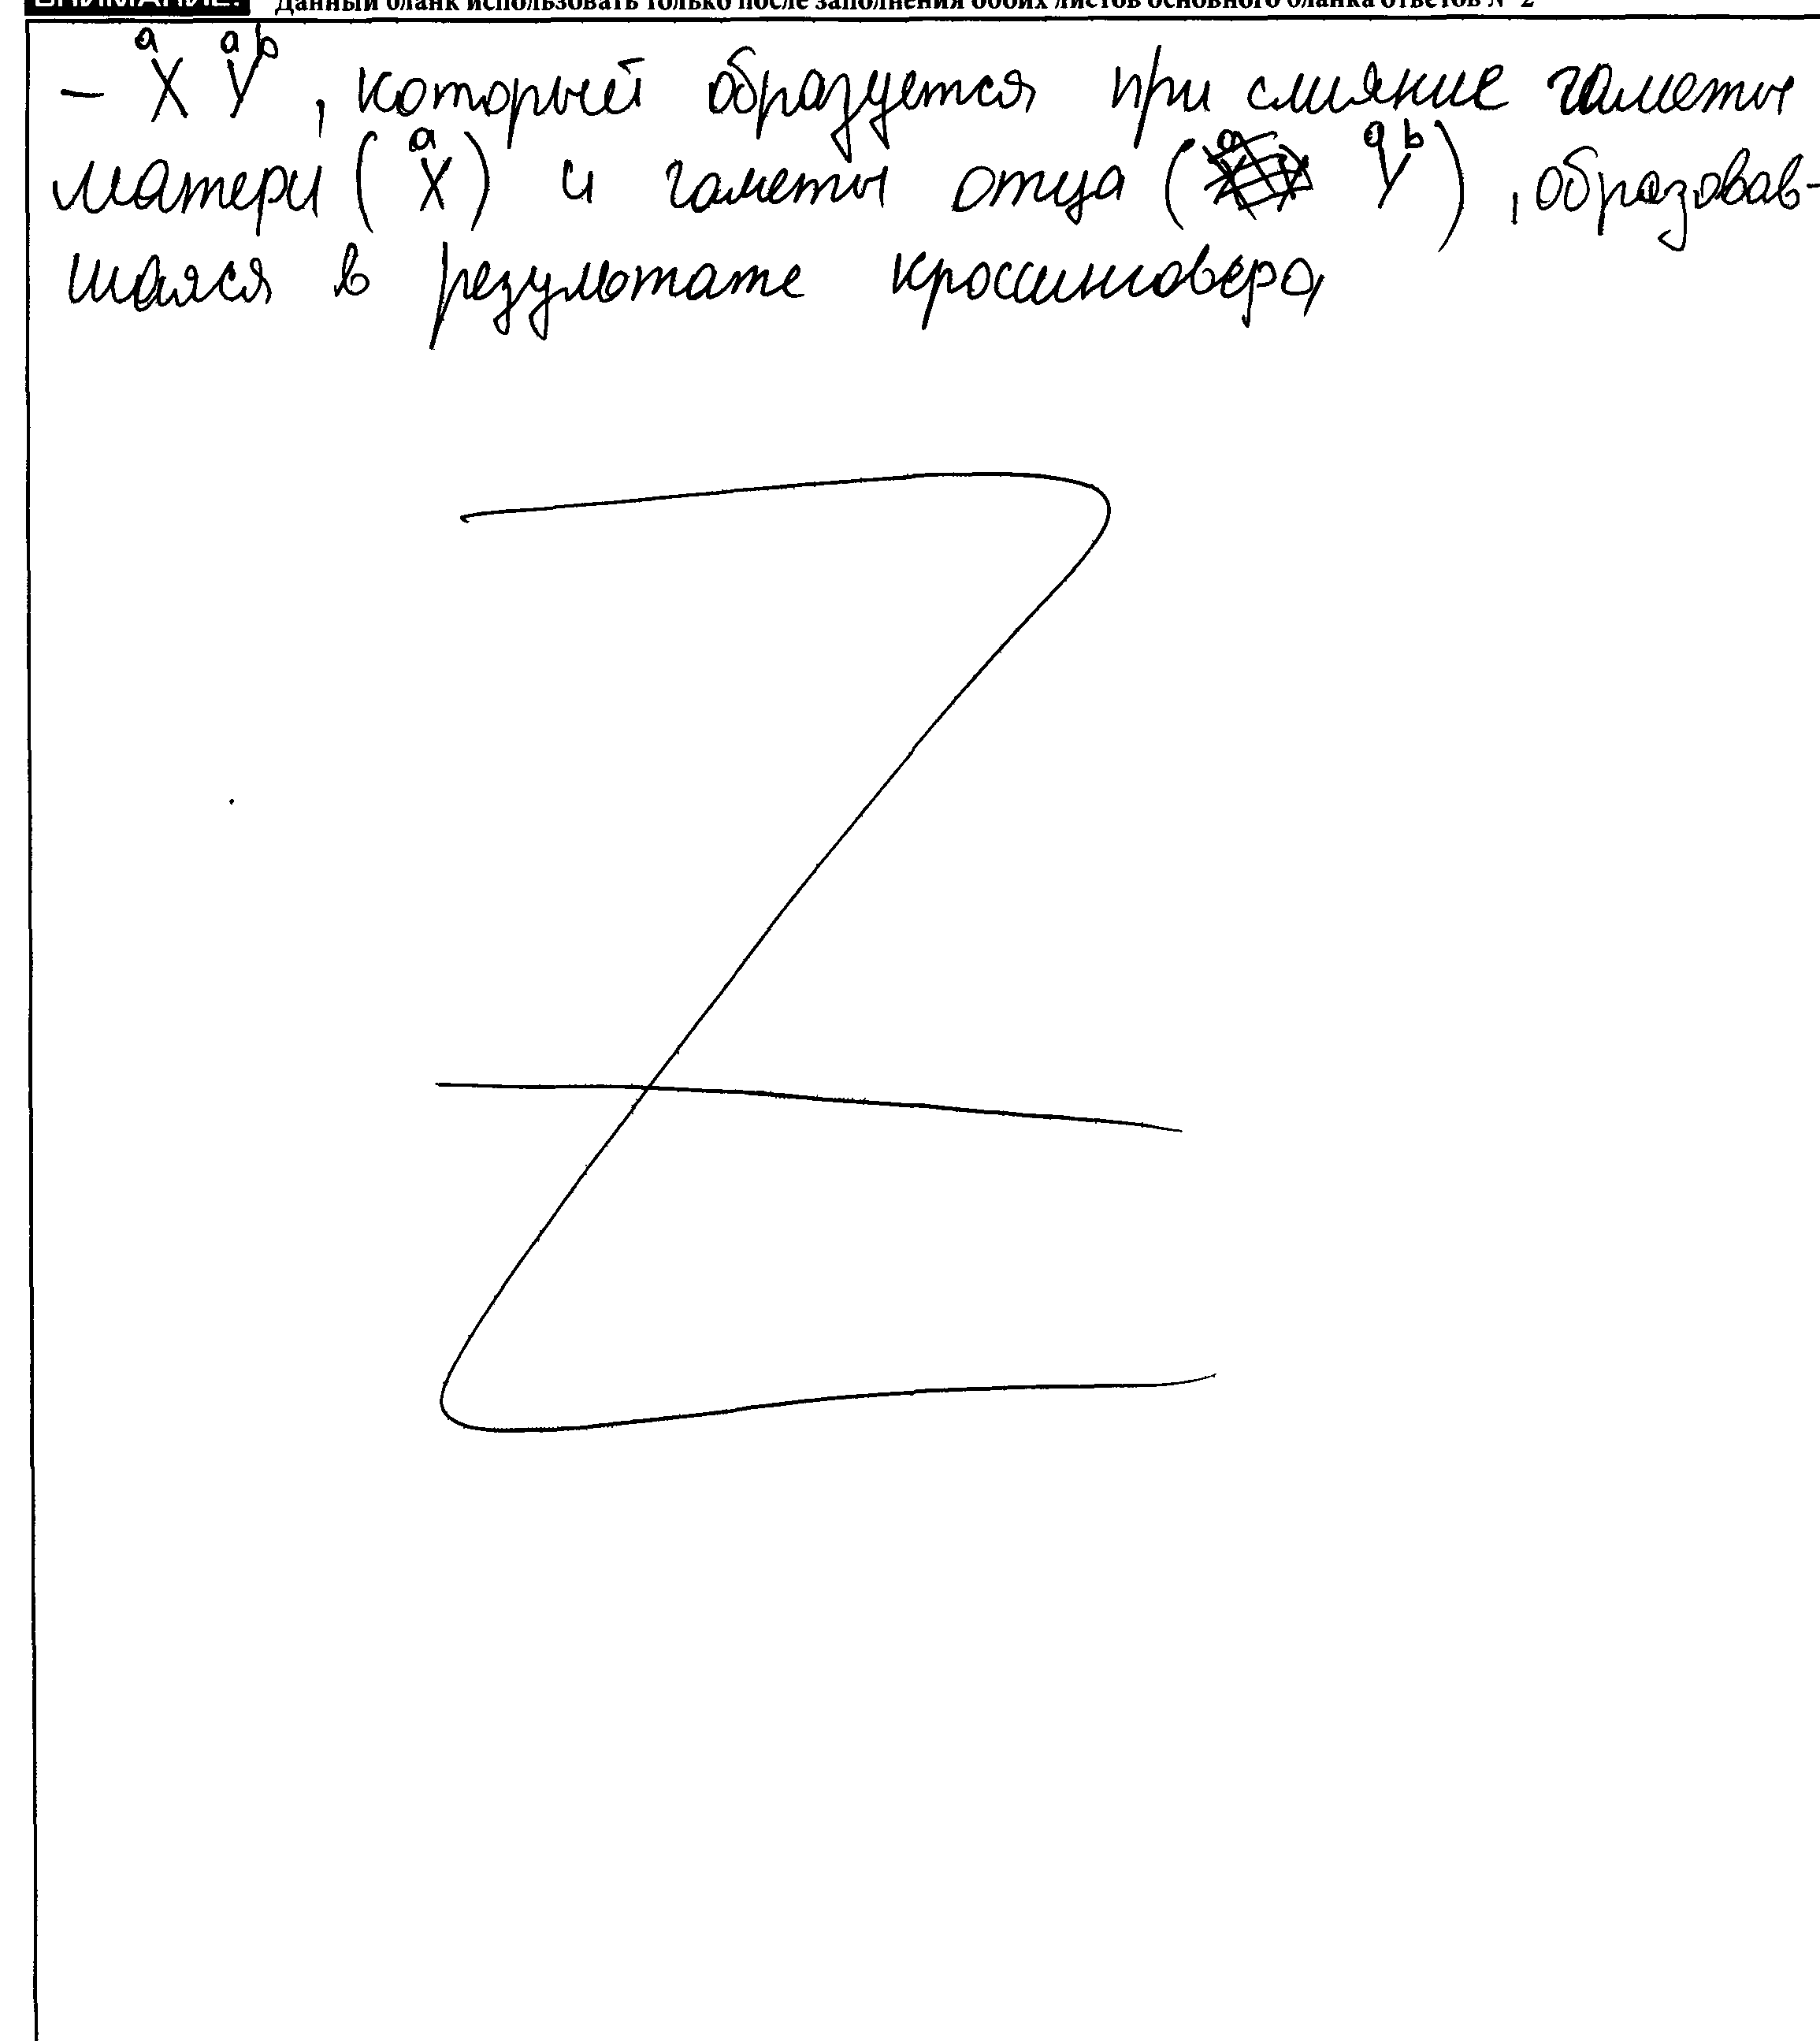 ВНИМАНИЕ! Данный бланк использовать только после заполнения обоих листов основного бланка ответов № 2
– X^a Y^ab, который образуется при слияние гаметы
матери (X^a) и гаметы отца (Y^ab), образовав-
шаяся в результате кроссинговера,